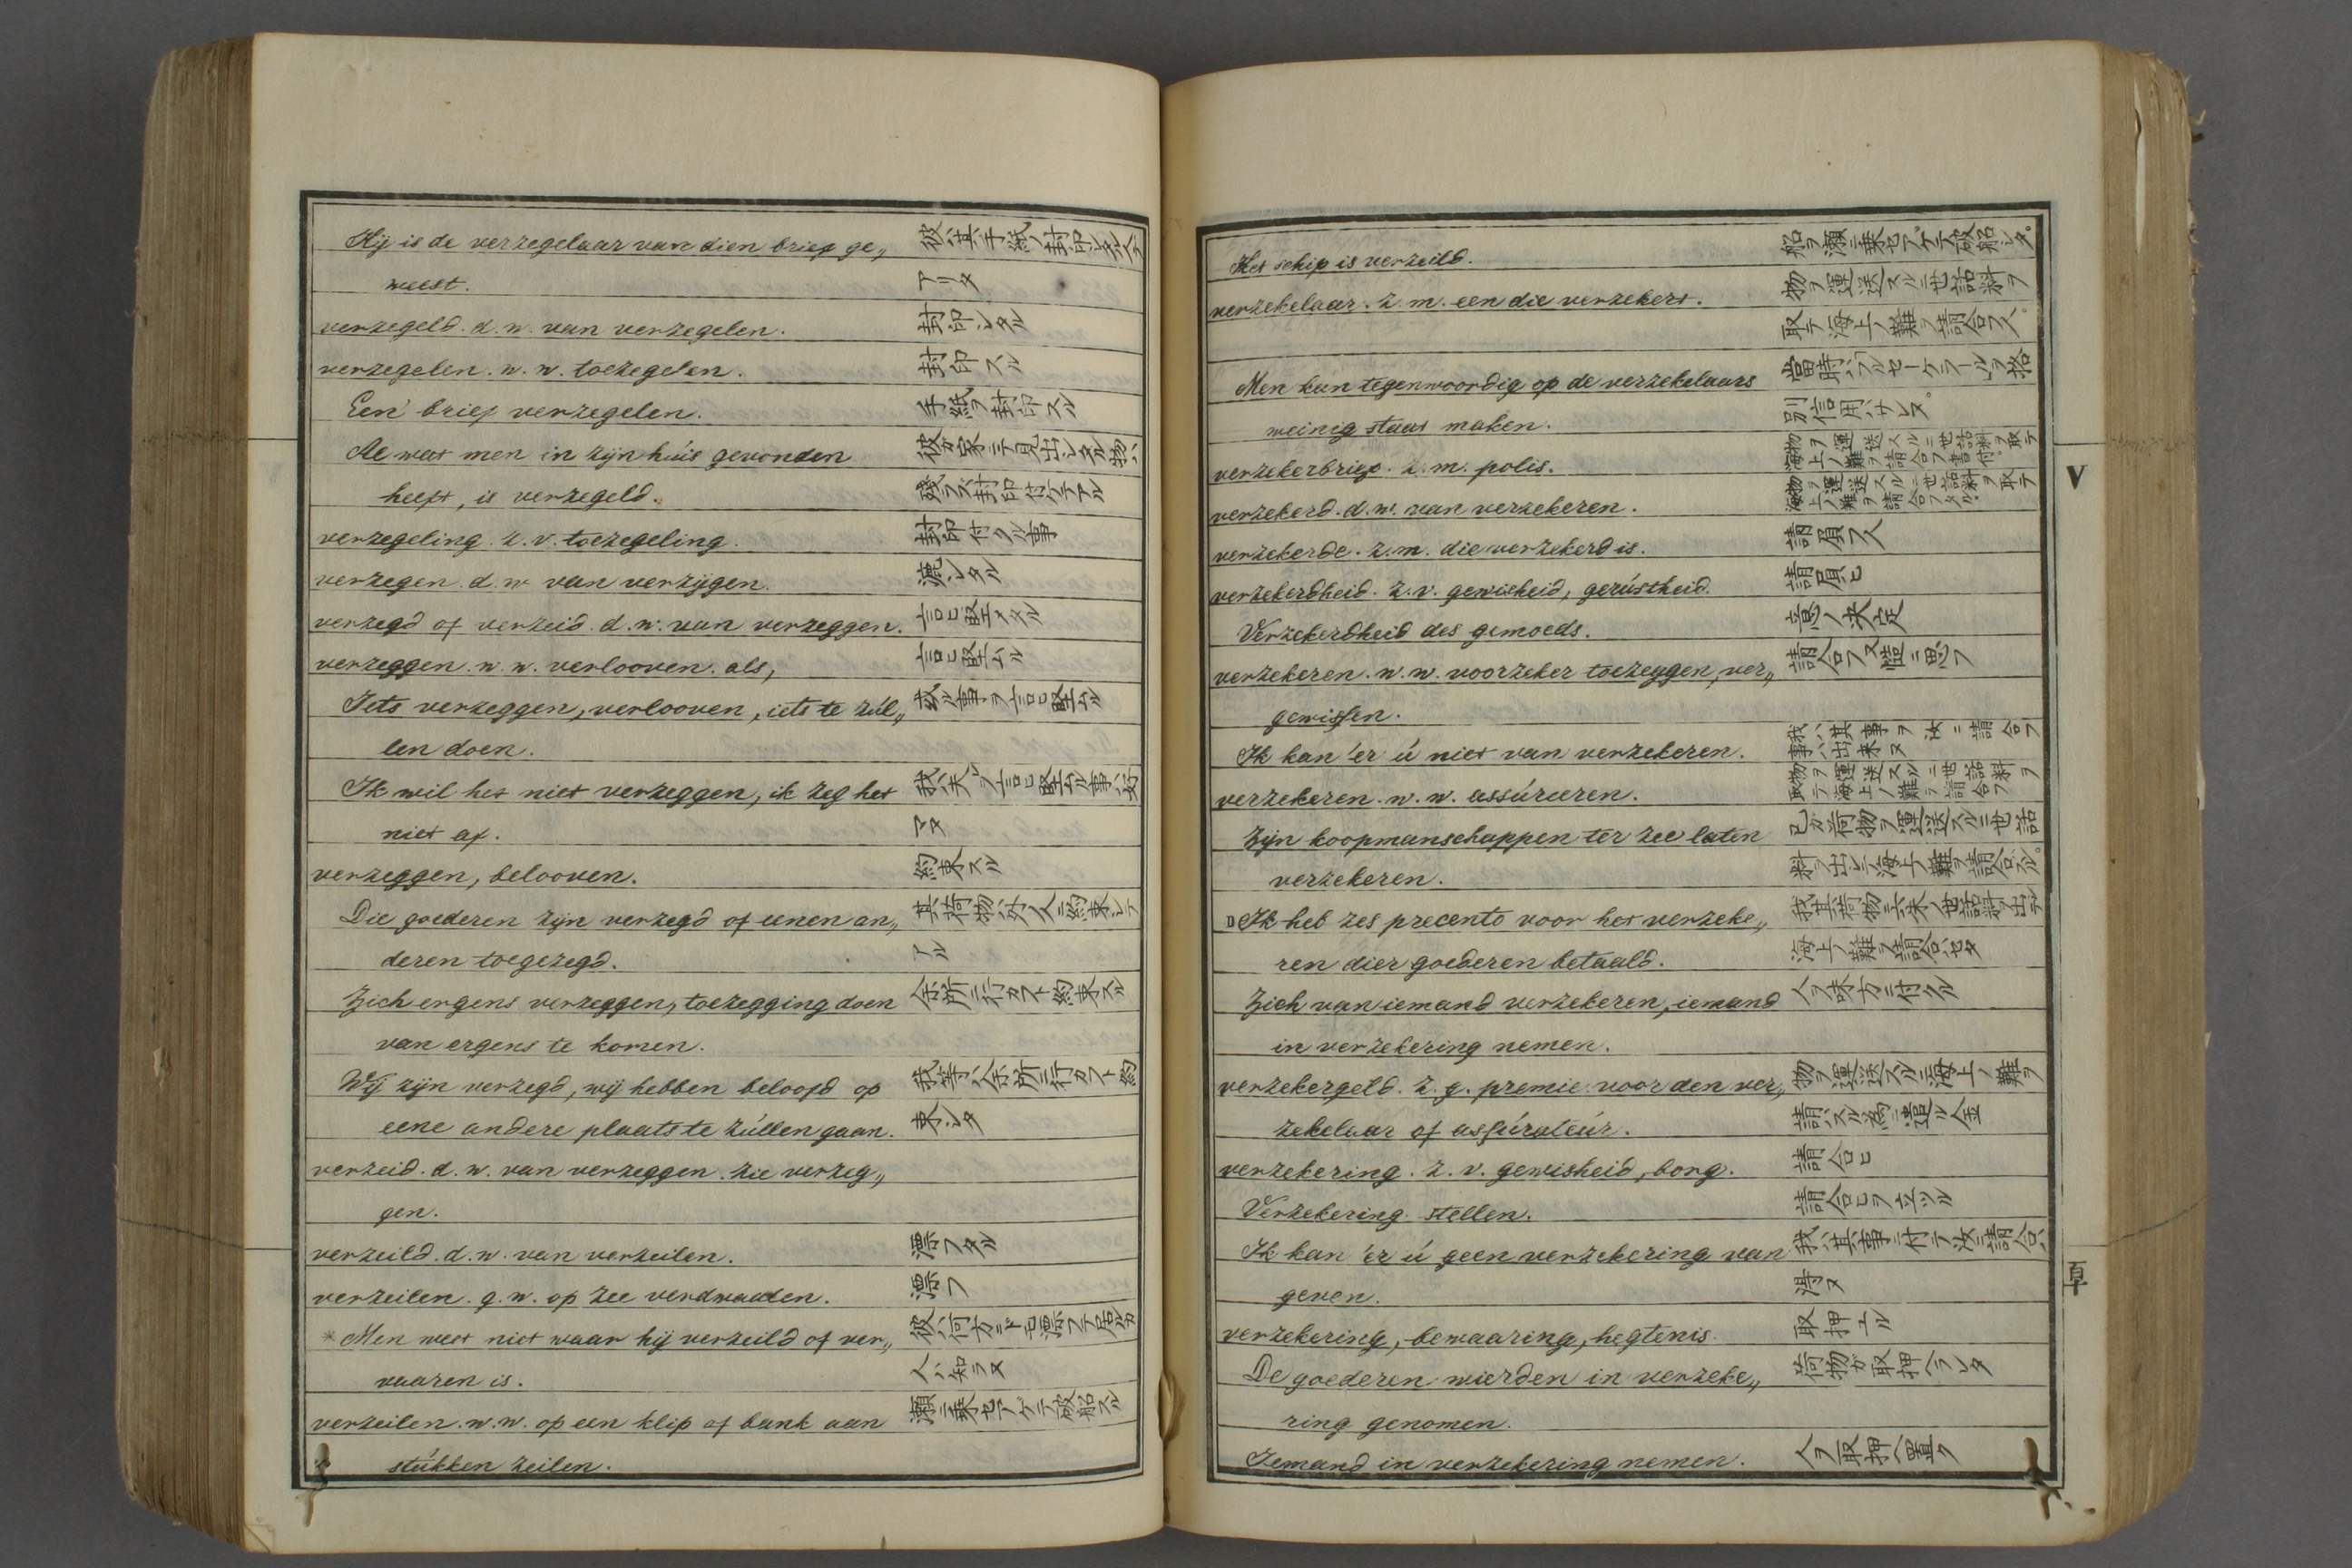 Hij is de verzegelaar van dien brief ge„ 彼ハ其手紙ノ封印シタル人デ
weest. アリタ
verzegeld. d. w. van verzegelen. 封印シタル
verzegelen. w. w. toezegelen. 封印スル
Een' brief verzegelen. 手紙ヲ封印スル
Al wat men in zijn húis gevonden 彼ガ家ニテ見出シタル物ハ
heeft, is verzegeld. 残ラズ封印付ケテアル
verzegeling. z. v. toezegeling. 封印付クル事
verzegen. d. w van verzijgen. 漉シタル
verzegd of verzeid. d. w. van verzeggen. 言ヒ堅メタル
verzeggen. w. w. verlooven. als, 言ヒ堅ムル
Iets verzeggen, verlooven, iets te zúl„ 或ル事ヲ言ヒ堅ムル
len doen.
Ik wil het niet verzeggen, ik zeg het 我ハ夫ヲ言ヒ堅ムル事ハ好
niet af. マヌ
verzeggen, belooven. 約束スル
Die goederen zijn verzegd of eenen an„ 其荷物ハ外人ニ約束シテ
deren toegezegd. アル
Zich ergens verzeggen, toezegging doen 余所ニ行カフト約束スル
van ergens te komen.
Wij zijn verzegd, wij hebben beloofd op 我等ハ余所ニ行カフト約
eene andere plaats te zúllen gaan. 束シタ
verzeid. d. w. van verzeggen. zie verzeg„
gen.
verzeild. d. w. van verzeilen. 漂フタル
verzeilen. g. w. op zee verdwaalen. 漂フ
* Men weet niet waar hij verzeild of ver„ 彼ハ何方ニ漂フテ居ルカ
vaaren is. 人ハ知ラヌ
verzeilen. w. w. op een klip of bank aan 瀬ニ乗セアゲテ破船スル
stúkken zeilen.
Het schip is verzeild. 船ヲ瀬ニ乗セアゲテ破船シタ。
verzekelaar. z. m. een die verzekert. 物ヲ運送スルニ世話料ヲ
取テ海上ノ難ヲ請合フ人。
Men kan tegenwoordig op de verzekelaars 當時ハフルセーケラールヲ格
weinig staat maken. 別信用ハサレヌ。
verzekerbrief. z. m. polis. 物ヲ運送スルニ世話料ヲ取テ海上ノ難ヲ請合フ書付。
verzekerd. d. w. van verzekeren. 物ヲ運送スルニ世話料ヲ取テ海上ノ難ヲ請合フタル。
verzekerde. z. m. die verzekerd is. 請負フ人
verzekerdheid. z. v. gewisheid, gerústheid. 請負ヒ
Verzekerdheid des gemoeds. 意ノ决定
verzekeren. w. w. voorzeker toezeggen, ver„ 請合フ又慥ニ思フ
gewissen.
Ik kan 'er ú niet van verzekeren. 我ハ其事ヲ汝ニ請合フ事ハ出来ヌ
verzekeren. w. w. assúrueren. 物ヲ運送スルニ世話料ヲ取テ海上ノ難ヲ請合フ
Zijn koopmanschappen ter zee laten 己ガ荷物ヲ運送スルニ世話
verzekeren. 料ヲ出シテ海上ノ難ヲ請合スル。
Ik heb zes precento voor het verzeke„
ren dier goederen betaald. 海上ノ難ヲ請合ハセタ
Zich van iemand verzekeren, iemand 人ヲ味方ニ付クル
in verzekering nemen.
verzekergeld. z. g. premie voor den ver„ 物ヲ運送スルニ海上ノ難ヲ
zekelaar of assúrateúr. 請スル為ニ遣ル金
verzekering. z. v. gewisheid, borg. 請合ヒ
Verzekering stellen. 請合ヒヲ立ツル
Ik kan 'er ú geen verzekering van 我ハ其事ニ付テ汝ニ請合ハ
geven. 得ヌ
verzekering, bewaaring, hegtenis. 取押エル
De goederen wierden in verzeke„ 荷物ガ取押ヘラレタ
ring genomen.
Iemand in verzekering nemen. 人ヲ取押ヘ置ク
V